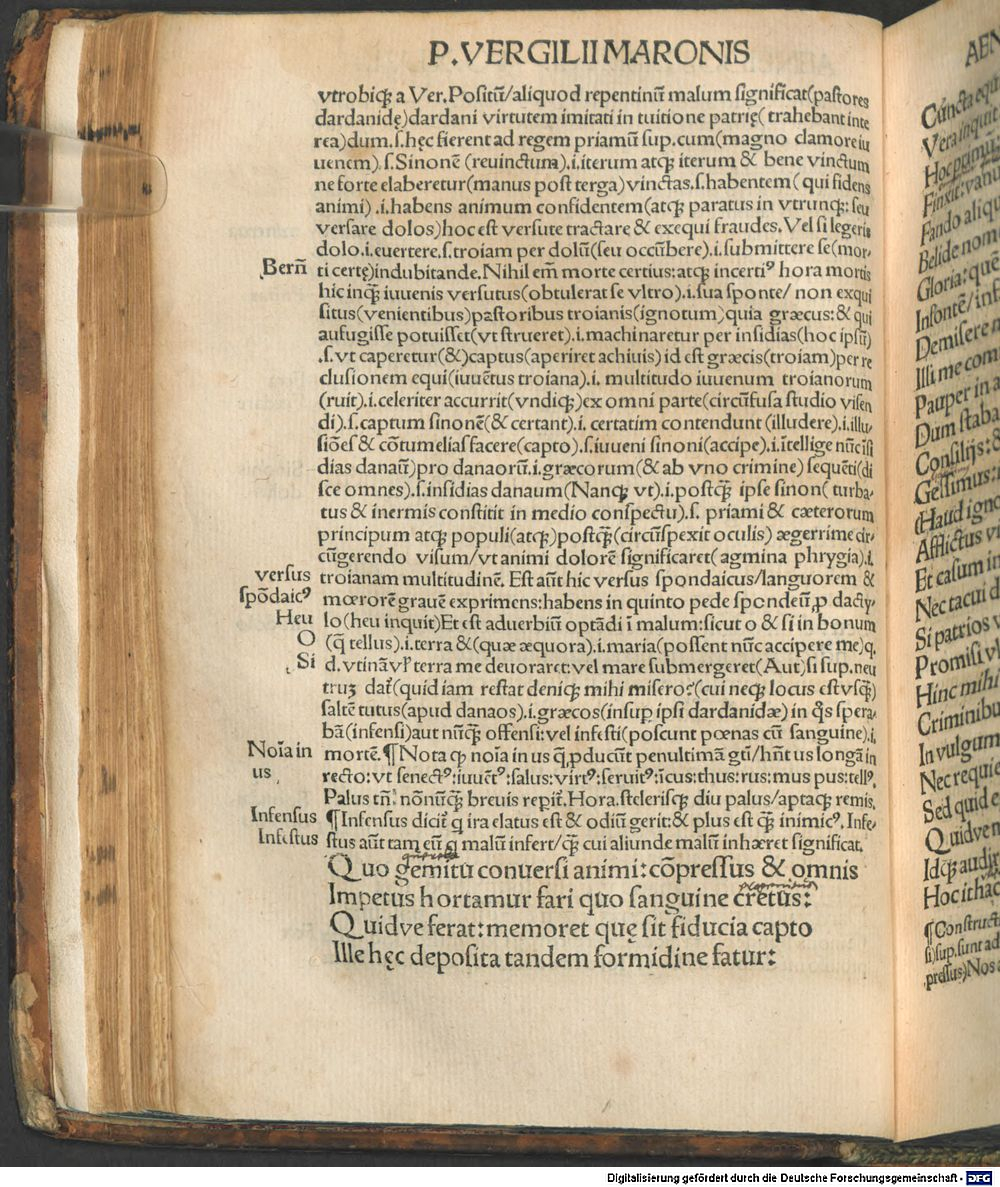 P.VERGILII MARONIS
vtrobiqꝫ a Ver. Positū/aliquod repentinū malum significat(pastores
dardanidę)dardani virtutem imitati in tuitione patrię( trahebant inte
rea)dum.ſ.hęc fierent ad regem priamū sup.cum(magno clamore iu
uenem).ſ.Sinonē (reuinctum).i.iterum atqꝫ iterum & bene vinctum
ne forte elaberetur(manus post terga)vinctas.ſ.habentem( qui fidens
animi) .i.habens animum confidentem(atqꝫ paratus in vtrunqꝫ: seu
versare dolos)hoc est versute tractare & exequi fraudes. Vel si legeris
dolo.i.euertere.ſ.troiam per dolū(seu occūbere).i.submittere se(mor-
Berñ
ti certę)indubitande. Nihil em̄ morte certius: atqꝫ incertiꝰ hora mortis
hic inqꝫ iuuenis versutus(obtulerat se vltro).i.sua sponte/ non exqui
situs(venientibus)pastoribus troianis(ignotum)quia græcus:& qui
aufugisse potuisset(vt strueret).i.machinaretur per insidias(hoc ipsū)
.ſ.vt caperetur(&)captus(aperiret achiuis) id est græcis(troiam)per re
clusionem equi(iuuētus troiana).i. multitudo iuuenum troianorum
(ruit).i.celeriter accurrit(vndiqꝫ)ex omni parte(circūfusa studio visen
di).ſ.captum sinonē(& certant).i. certatim contendunt (illudere).i.illu-
siōes & cōtumelias facere(capto).ſ.iuueni sinoni(accipe).i.ītellige nūc īsi
dias danaū)pro danaorū.i.græcorum(& ab vno crimine) sequēti(di
sce omnes).ſ.insidias danaum(Nanqꝫ vt).i.postqꝫ ipse sinon( turba-
tus & inermis constitit in medio conspectu).ſ. priami & cæterorum
principum atqꝫ populi(atqꝫ)postqꝫ(circūspexit oculis) ægerrime cir-
cūgerendo visum/vt animi dolorē significaret( agmina phrygia).i.
versus
troianam multitudinē. Est aūt hic versus spondaicus/languorem &
spōdaicꝰ
mœrorē grauē exprimens:habens in quinto pede spondeū, ꝓ dacty-
Heu
lo(heu inquit)Et est aduerbiū optādi ī malum:sicut o & si in bonum
O
(q̄ tellus).i.terra &(quæ æquora).i.maria(possent nūc accipere me)q.
Si
d.vtinā vł terra me deuoraret:vel mare submergeret(Aut)si sup.neu
truꝫ dat̄(quid iam restat deniqꝫ mihi misero?(cui neqꝫ locus est vsqꝫ)
saltē tutus(apud danaos).i.græcos(insup ipsi dardanidæ) in q̄s spera-
bā(infensi)aut nūqꝫ offensi:vel infesti(poscunt pœnas cū sanguine).i.
Noīa in
mortē.¶Nota ꝙ noīa in us q̄ ꝓducūt penultimā gtī/hn̄t us longā in
us
recto:vt senectꝰ:iuuētꝰ:salus:virtꝰ:seruitꝰ:īcus:thus:rus:mus pus:tellꝰ.
Palus tn̄ nōnūqꝫ breuis repit̄. Hora.sterilisqꝫ diu palus/aptaqꝫ remis.
Infensus
¶Infensus dicit̄ q ira elatus est & odiū gerit:& plus est qꝫ inimicꝰ. Infe-
Infestus
stus aūt tam eū q malū infert/qꝫ cui aliunde malū inhæret significat.
Quo gemitu conuersi animi: cōpressus & omnis
Impetus hortamur fari quo sanguine cretus:
Quidve ferat: memoret quę sit fiducia capto
Ille hęc deposita tandem formidine fatur:
AEN
Cuncta equi
Vera inquit
Hoc primū
Finxit: vanu
Fando aliqu
Belide nom
Gloria: quē
Insontē/inf
Demisere n
Illi me com
Pauper in a
Dum staba
Consilijs: &
Gessimus:
(Haud igno
Afflictus vi
Et casum in
Nec tacui d
Si patrios v
Promisi vl
Hinc mihi
Criminibu
In vulgum
Nec requie
Sed quid e
Quidve n
Idqꝫ audir
Hoc ithac
¶Construct
si)sup.sunt ad
pressus)Nos
Digitalisierung gefördert durch die Deutsche Forschungsgemeinschaft - DFG